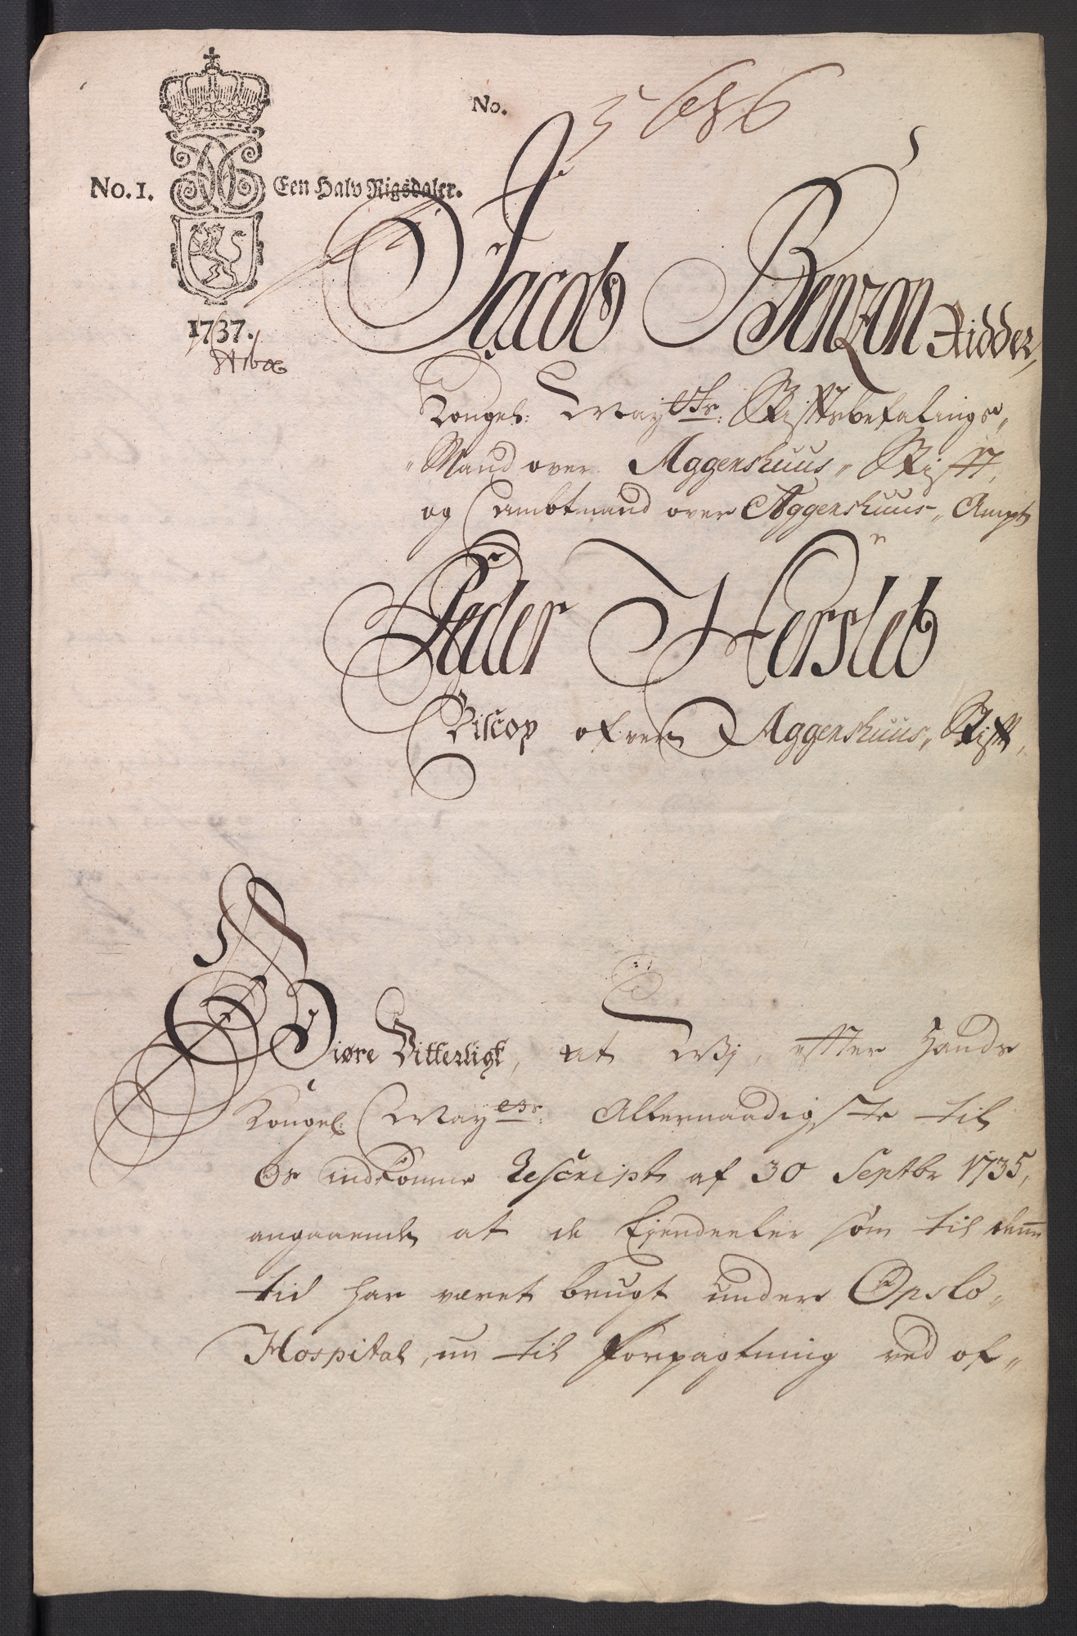 No. 5686
No. 1. Een Halv Rigsdaler.
1737.
Jacob Benzon Ridder,
Kongel: Mayets: Stifftsbefalings-
Mand over Aggershuus- Stifft,
og Ambtmand over Aggershuus- Ampt
Peder Hersleb
Biscop ofver Aggershuus- Stifft,
Giøre Vitterligt, at Wj, effter Hands
Kongel: Mayets: Allernaadigste til
Os indkomne Rescript af 30 Septbr 1735,
angaaende at de Ejendeeler som til denne
tid har været brugt under Opslo-
Hospital, nu til Forpagtning ved of-